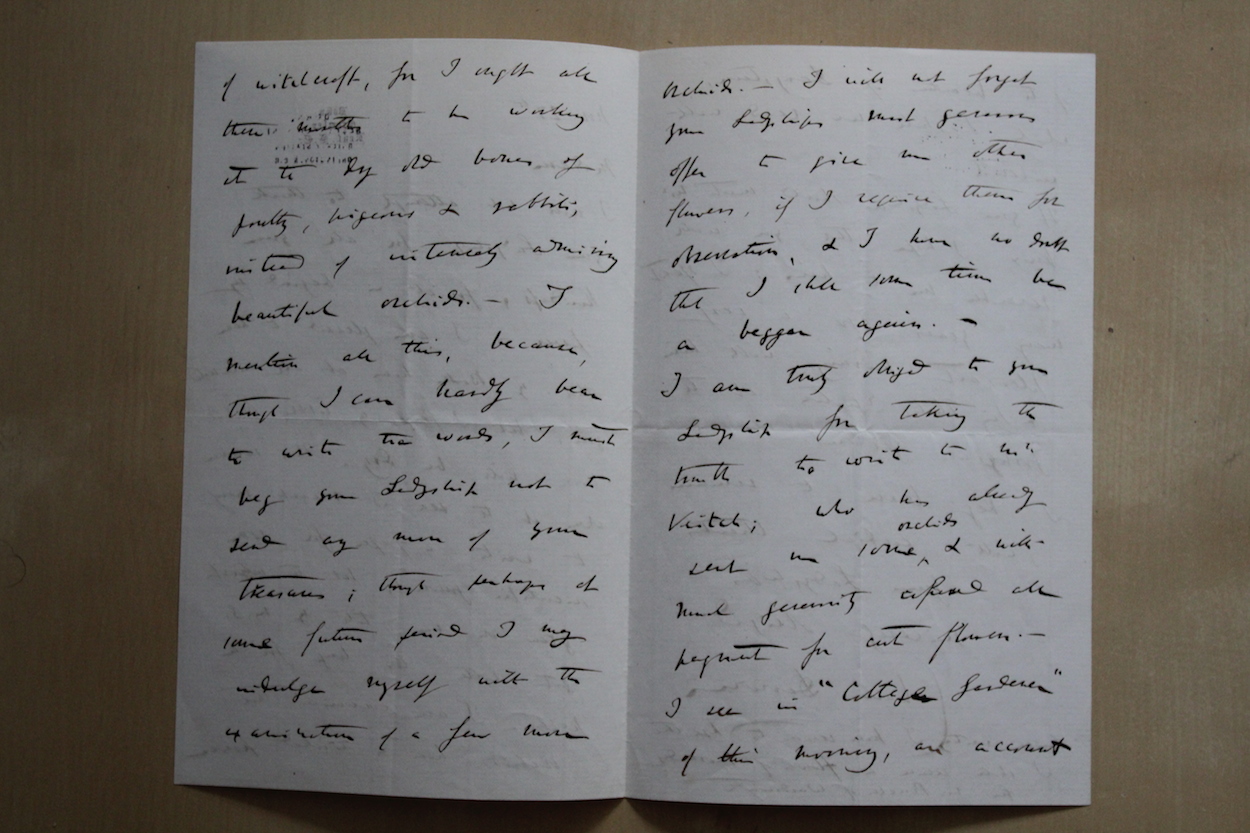 of witchcraft, for I ought all
these months to be working
at the dry old bones of
poultry, pigeons & rabbits,
instead of intensely admiring
beautiful orchids. — I
mention all this, because,
though I can hardly bear
to write the words, I must
beg your Ladyship not to
send any more of your
treasures; though perhaps at
some future period I may
indulge myself with the
examination of a few more
orchids. — I will not forget
your Ladyships most generous
offer to give me other
flowers, if I require them for
observation, & I have no doubt
that I shall some time be
a beggar again. —
I am truly obliged to your
Ladyship for taking the
trouble to write to Mr.
Veitch; who has already
sent me some orchids, & with
much generosity refused all
payment for cut flowers. —
I see in "Cottage Gardener"
of this morning, an account